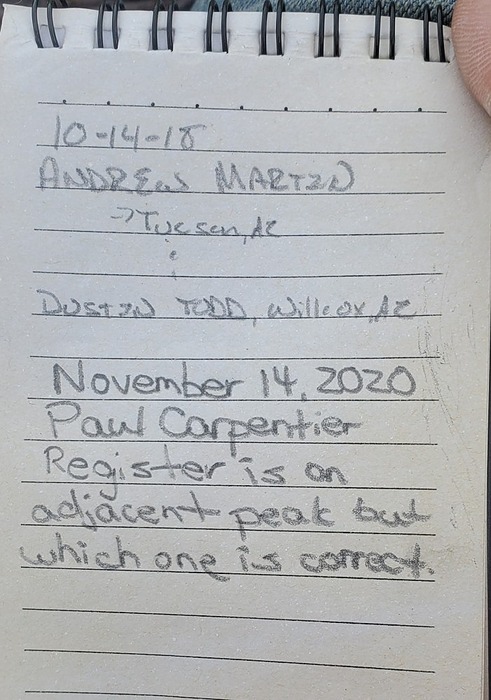 10-14-18
ANDREW MARTIN
→Tucson, AZ
DUSTIN TODD, Willcox, AZ
November 14, 2020
Paul Carpentier
Register is on
adjacent peak but
which one is correct.